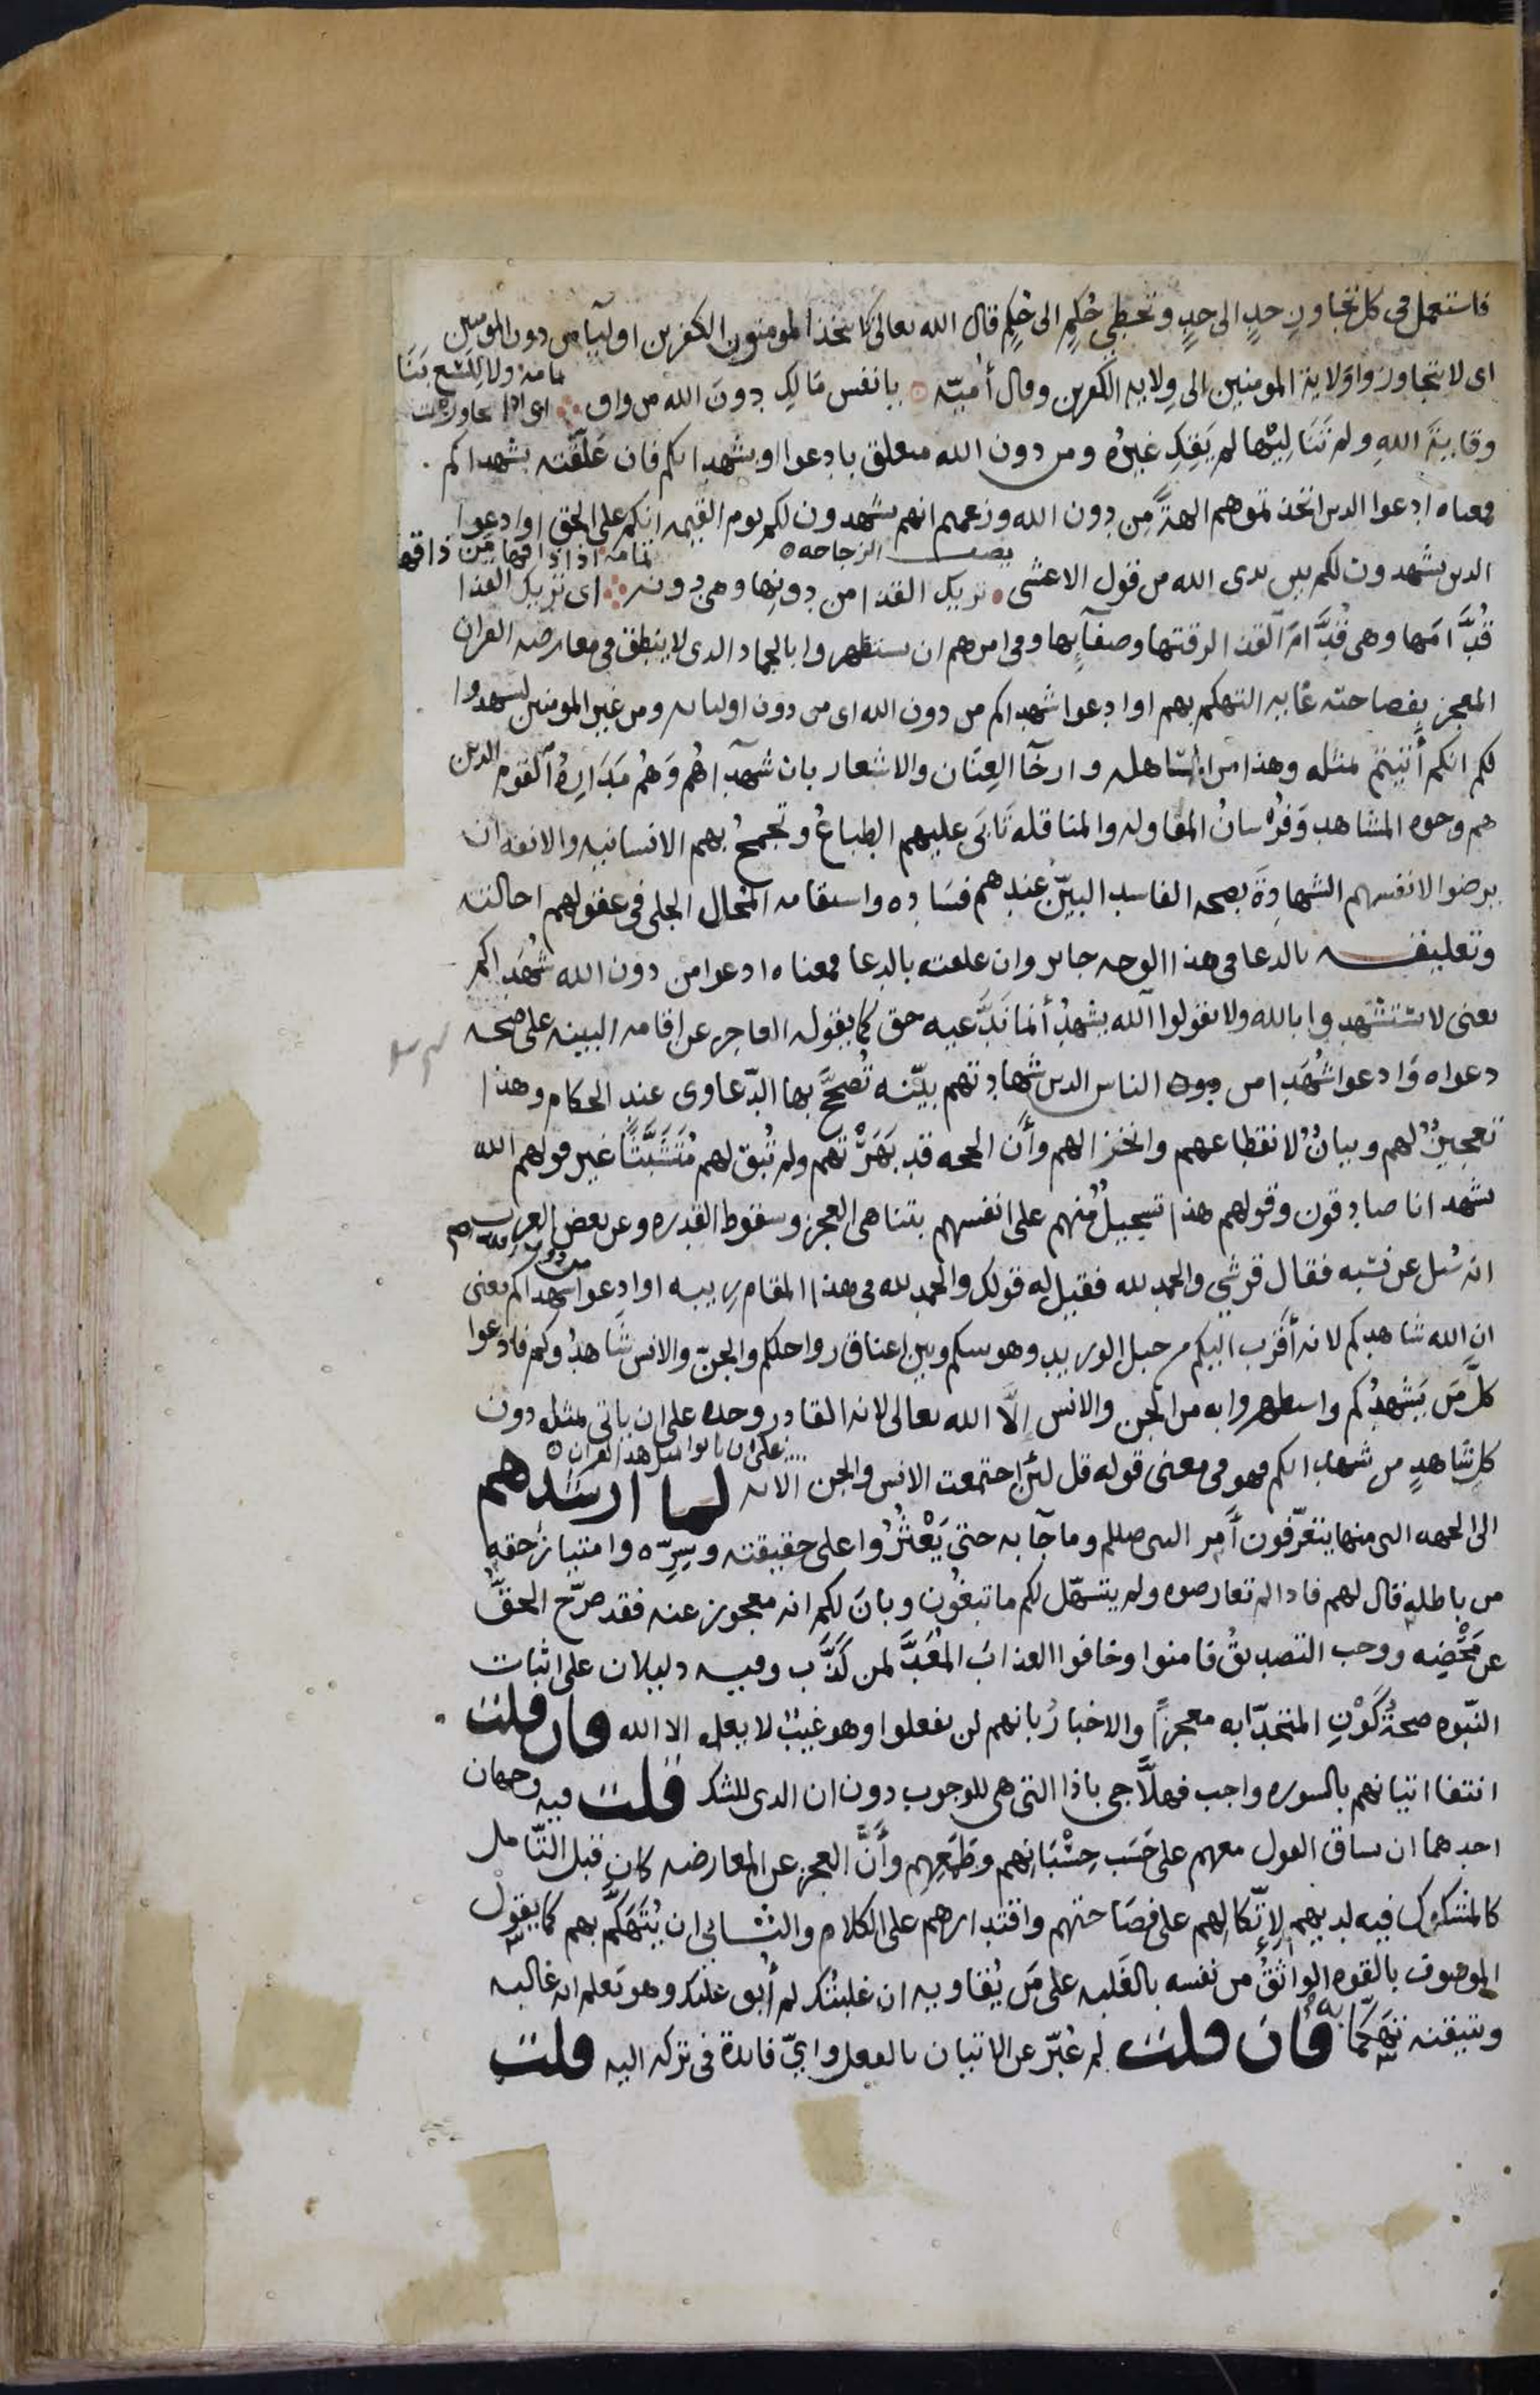 فاستعمل في كل تجاوز حدٍ الى حدٍ وتخطي حُكمٍ الى حُكمٍ قال الله تعالى لا يتخذ المومنون الكفرين اوليآ من دون المومنين
اى لا يتجاوزوا وَلاية المومنين الى وِلايه الكفرين وقال أميّه يا نفس مَا لكِ دونَ الله من واق اى اذا تجاوزت
وقاية الله ولم تَنَا لِيْها لم يَقِكِ غيره ومن دون الله متعلق بادعوا او بشهدايكم فان عَلّقته بشهداكم
فمعناه ادعوا الدين اتخذتموهم الهةً مِن دون الله وزعمهم انهم يشهدون لكم يوم القيمه انكم على الحق او ادعوا
يصف الزجاجه
تمامه اذا ذاقها مَن ذاقها
الدين يشهدون لكم بين يدى الله من قول الاعشى تريك القذا من دونها وهى دونه اى تريك القذا
قُدَّامَها وهى قُدَّامَ القذا لرقتها وصفآيها وفى امرهم ان يستظهروا بالجماد الدى لا ينطق فى معارضه القران
المعجز بفصاحته غايه التهكم بهم او ادعوا شهداكم من دون الله اى من دون اوليايه ومن غير المومنين ليشهدوا
لكم انكم أتيتم بمثله وهذا من المساهله وارخآ العِنَان والاشعار بان شهدآهُم وَهُم مَدَارِهُ القوم الدين
هم وجوه المشاهد وَفُرسانُ المقاوله والمناقله تَابَى عليهم الطباعُ وتجمحُ بهم الانسانيه والانفه ان
يرضوا لانفسهم الشهادةَ بصحه الفاسد البيّنِ عندهم فسَاده واستقامه المُحال الجلى فى عقولهم احالته
وتعليقه بالدعا فى هذا الوجه جايز وان علقته بالدعا فمعناه ادعوا من دون الله شُهدَاكم
يعنى لا تستشهدوا بالله ولا تقولوا الله يشهدُ أنّما نَدَّعيه حق كما يقوله العاجز عن اقامه البينه على صحه
دعواه وَادعوا شُهَدا من دون الناس الدين شهادتهم بيّنه تُصَحَّحُ بها الدّعاوى عند الحكام وهذا
تعجيزٌ لهم وبيانٌ لانقطاعهم وانخزالهم وأَن الحجه قد بَهَرَتْهم ولم تُبق لهم مُتَشَبَّثًا غير قولهم الله
يشهد انا صادقون وقولهم هذا تسجيلٌ مِّنهم على انفسهم بتناهى العجز وسقوط القدره وعن بعض العرب
انه سُيل عن نسَبه فقال قرشي والحمد لله فقيل له قولك والحمد لله فى هذا المقام ريبه او ادعوا من دون الله شهداكم يعنى
ان الله شاهدكم لانه أقرب اليكم من حبل الوريد وهو بينكم وبين اعناق رواحلكم والجنّ والانس شَاهدُوكم فادعوا
كلَّ مَن يَشْهدُكم واستظهروا به من الجن والانس إلَّا الله تعالى لانه القادر وحده على ان ياتي بمثله دون
كل شاهدٍ من شهدايكم فهو فى معنى قوله قل لئن اجتمعت الانس والجن على ان ياتوا بمثل هذا القران الايه لما ارشدهم
الى الجهه التى منها يتعرّفون أمر النبى صلعم وما جآ به حتى يَعْثُرُوا على حقيقته وسِرّه وامتيازِ حقه
من باطله قال لهم فادا لم تعارضوه ولم يتسهّل لكم ما تبغُون وبانَ لكم انه معجوز عنه فقد صَرّح الحقُّ
عن مَحْضِه ووجب التصديقُ فامنوا وخافوا العذابَ المُعَدَّ لمن كَذَّب وفيه دليلان على اثبات
النبّوه صحةُ كَوْنِ المتَحدّا به معجزًا والاخبارُ بانهم لن يفعلوا وهو غيبٌ لا يعلمه الا الله فان قلت
انتفا اتيانهم بالسوره واجب فهلَّا جى باذا التى هى للوجوب دون ان الدى للشك قلت فيه وجهان
احدهما ان يساق القول معهم على حَسَب حِسْبَانِهم وطَمَعِهِم وأَنَّ العجز عن المعارضه كان قبل التّامل
كالمشكوك فيه لديهم لاِتِّكالِهم على فصَاحتهم واقتدارهم على الكلام والثانى ان يُتَهَكَّم بهم كما يقول
الموصوف بالقوه الواثقُ من نفسه بالغَلبه على مَن يُقاويه ان غلبتُك لم أُبق عليك وهو يَعلم انه غالبه
ويتيقنه تهَكّمًا به فان قلت لم عُبّر عن الاتيان بالفعل وايّ فايدة فى تركه اليه قلت